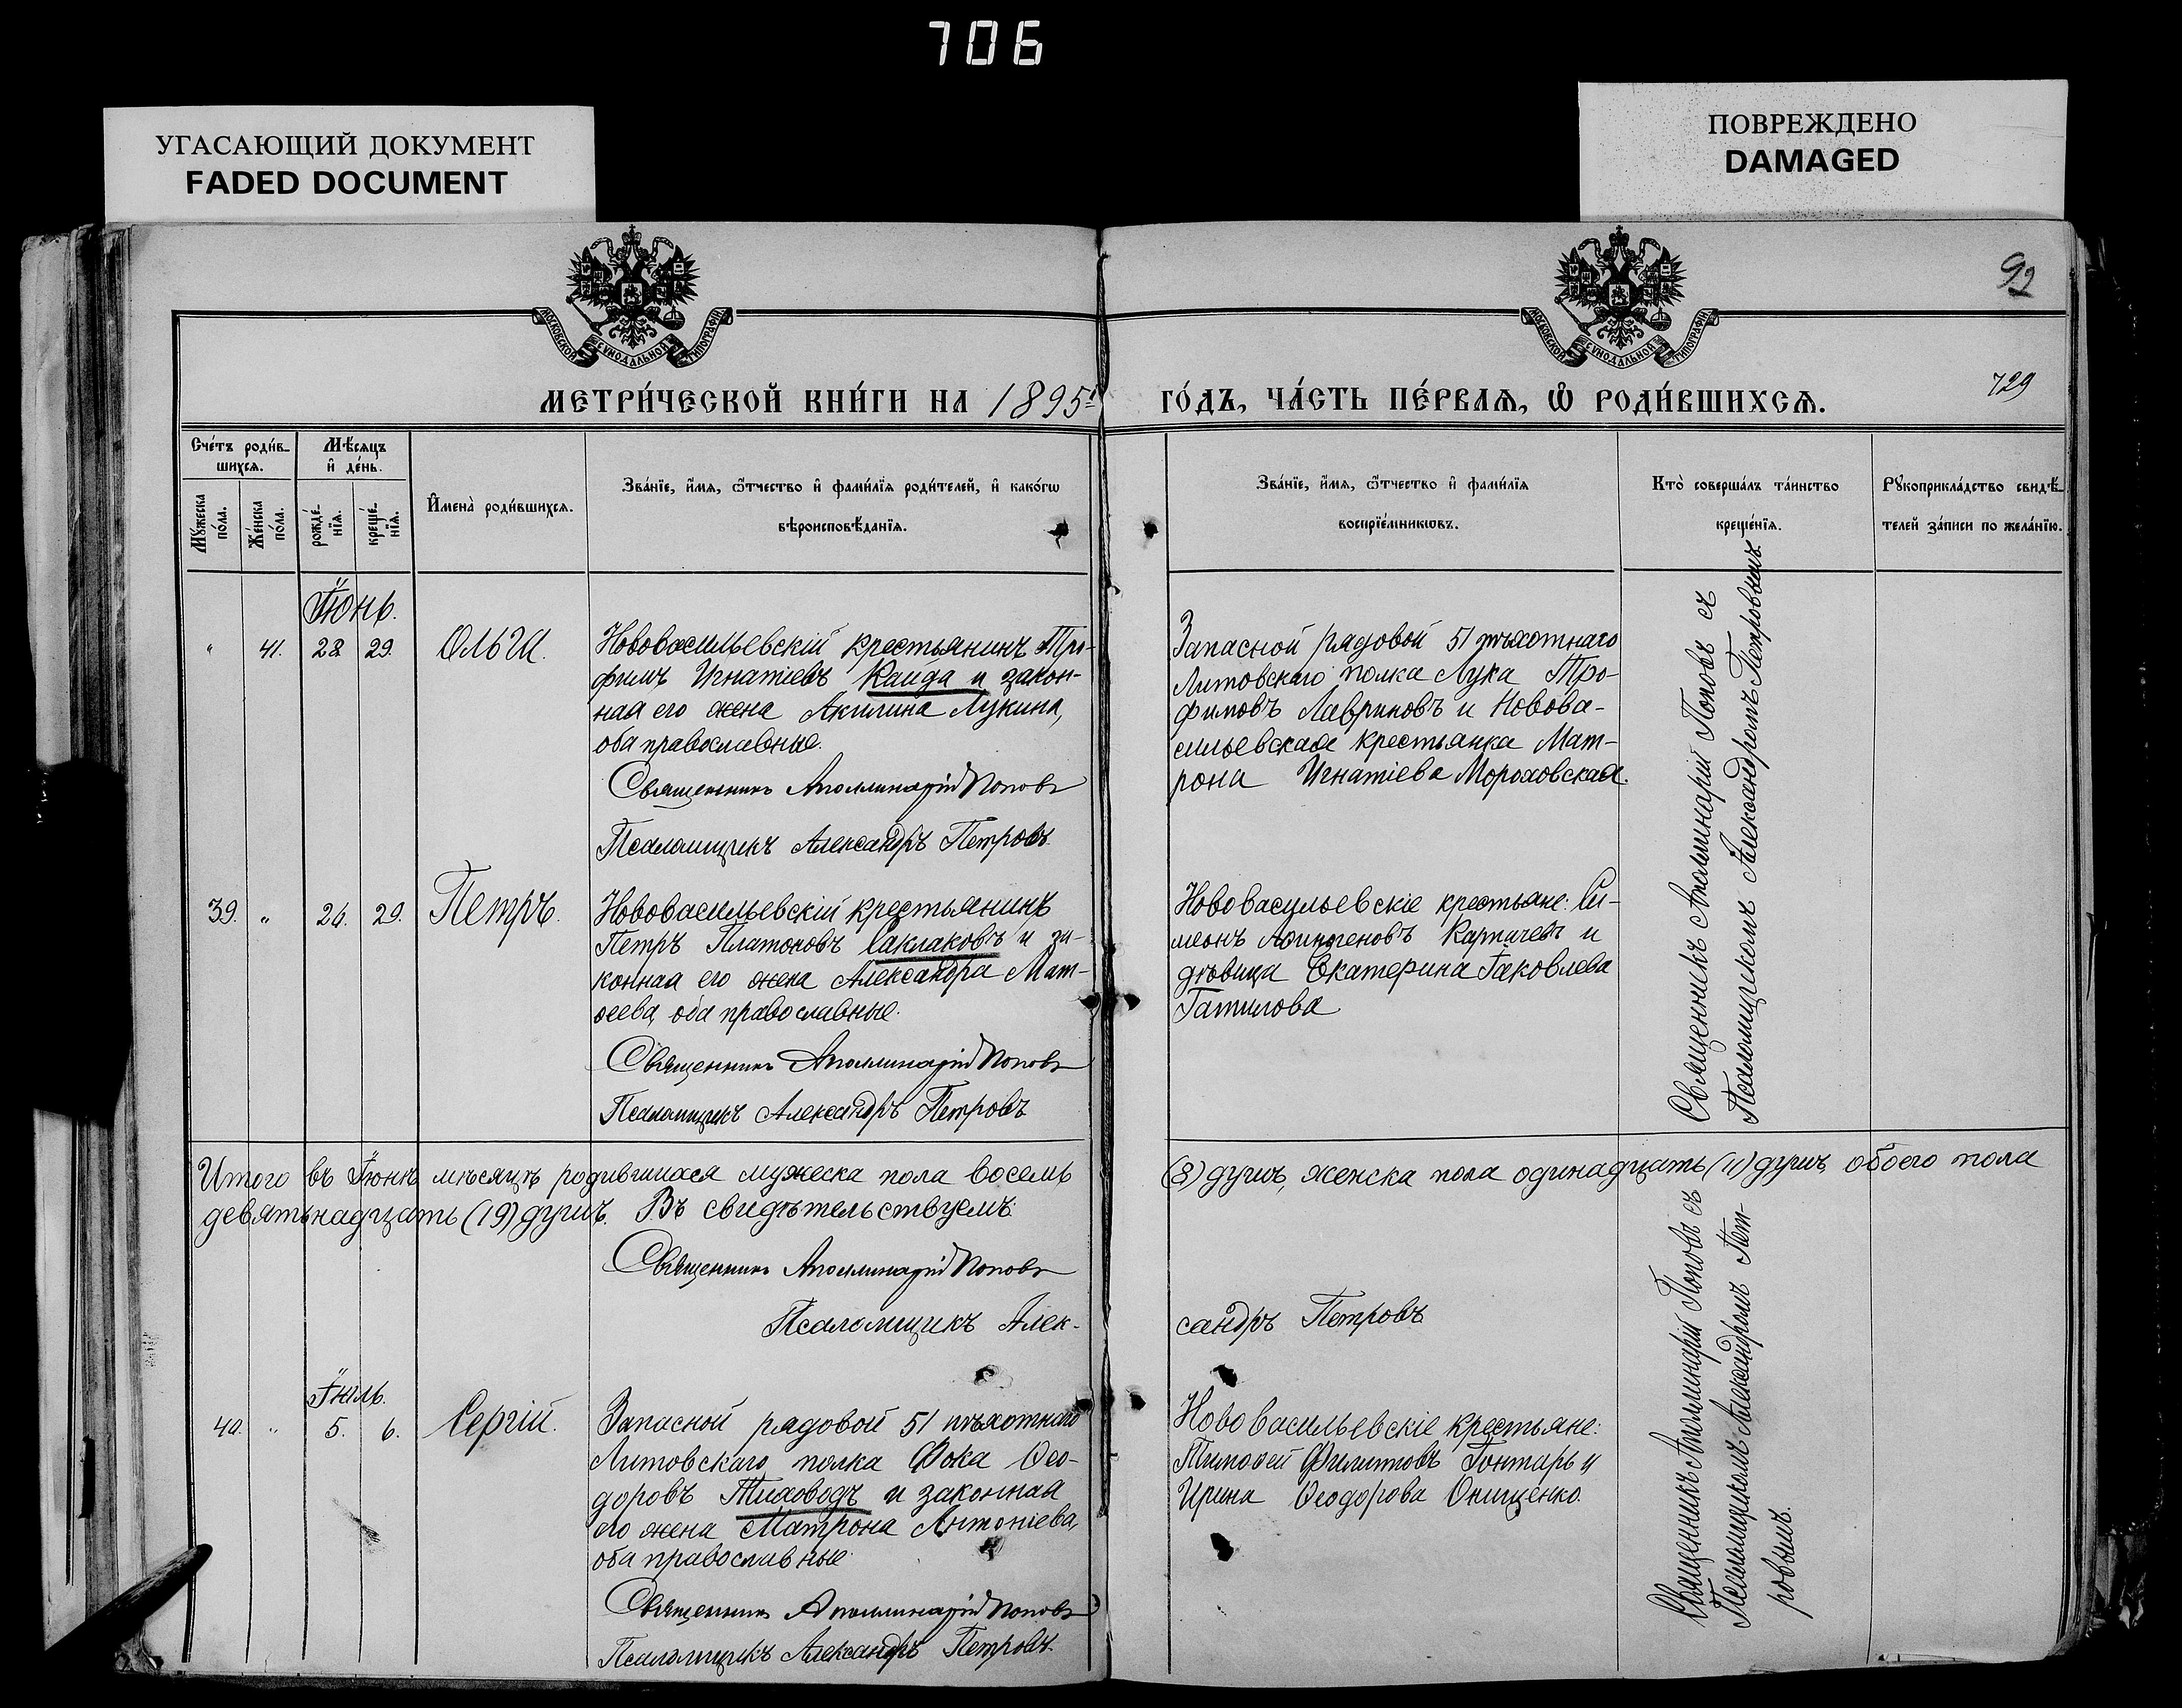 706
УГАСАЮЩИЙ ДОКУМЕНТ
FADED DOCUMENT
ПОВРЕЖДЕНО
DAMAGED
МОСКОВСКОЙ СѴНОДАЛЬНОЙ ТИПОГРАФІИ
МОСКОВСКОЙ СѴНОДАЛЬНОЙ ТИПОГРАФІИ
92
729
МЕТРИ́ЧЕСКОЙ КНИ́ГИ НА 1895 ГО́ДЪ, ЧА́СТЬ ПЕ́РВАѦ, Ѡ҆ РОДИ́ВШИХСѦ.
Сче́тъ роди́в-
шихсѧ.
Мꙋ́жеска
по́ла.
Же́нска
по́ла.
Мѣ́сѧцъ
и҆ де́нь.
рожде́-
нїѧ.
креще́-
нїѧ.
И҆мена̀ роди́вшихсѧ.
Зва́нїе, и҆́мѧ, ѻ҆́тчество и҆ фами́лїѧ роди́телей, и҆ како́гѡ
вѣроисповѣ́данїѧ.
Зва́нїе, и҆́мѧ, ѻ҆́тчество и҆ фами́лїѧ
воспрїе́мникѡвъ.
Кто̀ соверша́лъ та́инство
креще́нїѧ.
Рꙋкоприкла́дство свидѣ́-
телей за́писи по жела́нїю.
Іюнь.
" 41. 28 29. Ольга.
Нововасильевскій крестьянинъ Тро-
фимъ Игнатіевъ Каида и закон-
ная его жена Акилина Лукина,
оба православные.
Священникъ Аполлинарій Поповъ
Псаломщикъ Александръ Петровъ.
Запасной рядовой 51 пѣхотнаго
Литовскаго полка Лука Тро-
фимовъ Лавриновъ и Новова-
сильевская крестьянка Мат-
рона Игнатіева Мороховская.
Священникъ Аполлинарій Поповъ съ
Псаломщикомъ Александромъ Петровымъ.
39. " 26. 29. Петръ.
Нововасильевскій крестьянинъ
Петръ Платоновъ Саклаковъ и за-
конная его жена Александра Мат-
ѳеева, оба православные.
Священникъ Аполлинарій Поповъ
Псаломщикъ Александръ Петровъ
Нововасильевскіе крестьяне: Си-
меонъ Аѳиногеновъ Карпичевъ и
дѣвица Екатерина Іаковлева
Гатилова
Итого въ Іюнѣ мѣсяцѣ родившихся мужеска пола восемь (8) душъ, женска пола одинадцать (11) душъ, обоего пола
девятьнадцать (19) душъ. Въ свидѣтельствуемъ:
Священникъ Аполлинарій Поповъ
Псаломщикъ Алек-
сандръ Петровъ
Іюль.
40. " 5. 6. Сергій.
Запасной рядовой 51 пѣхотнаго
Литовскаго полка Фока Ѳео-
доровъ Тиховодъ и законная
его жена Матрона Антоніева,
оба православные.
Священникъ Аполлинарій Поповъ
Псаломщикъ Александръ Петровъ.
Нововасильевскіе крестьяне:
Тимоѳей Филипповъ Гонтарь и
Ирина Ѳеодорова Онищенко.
Священникъ Аполлинарій Поповъ съ
Псаломщикомъ Александромъ Пет-
ровымъ.